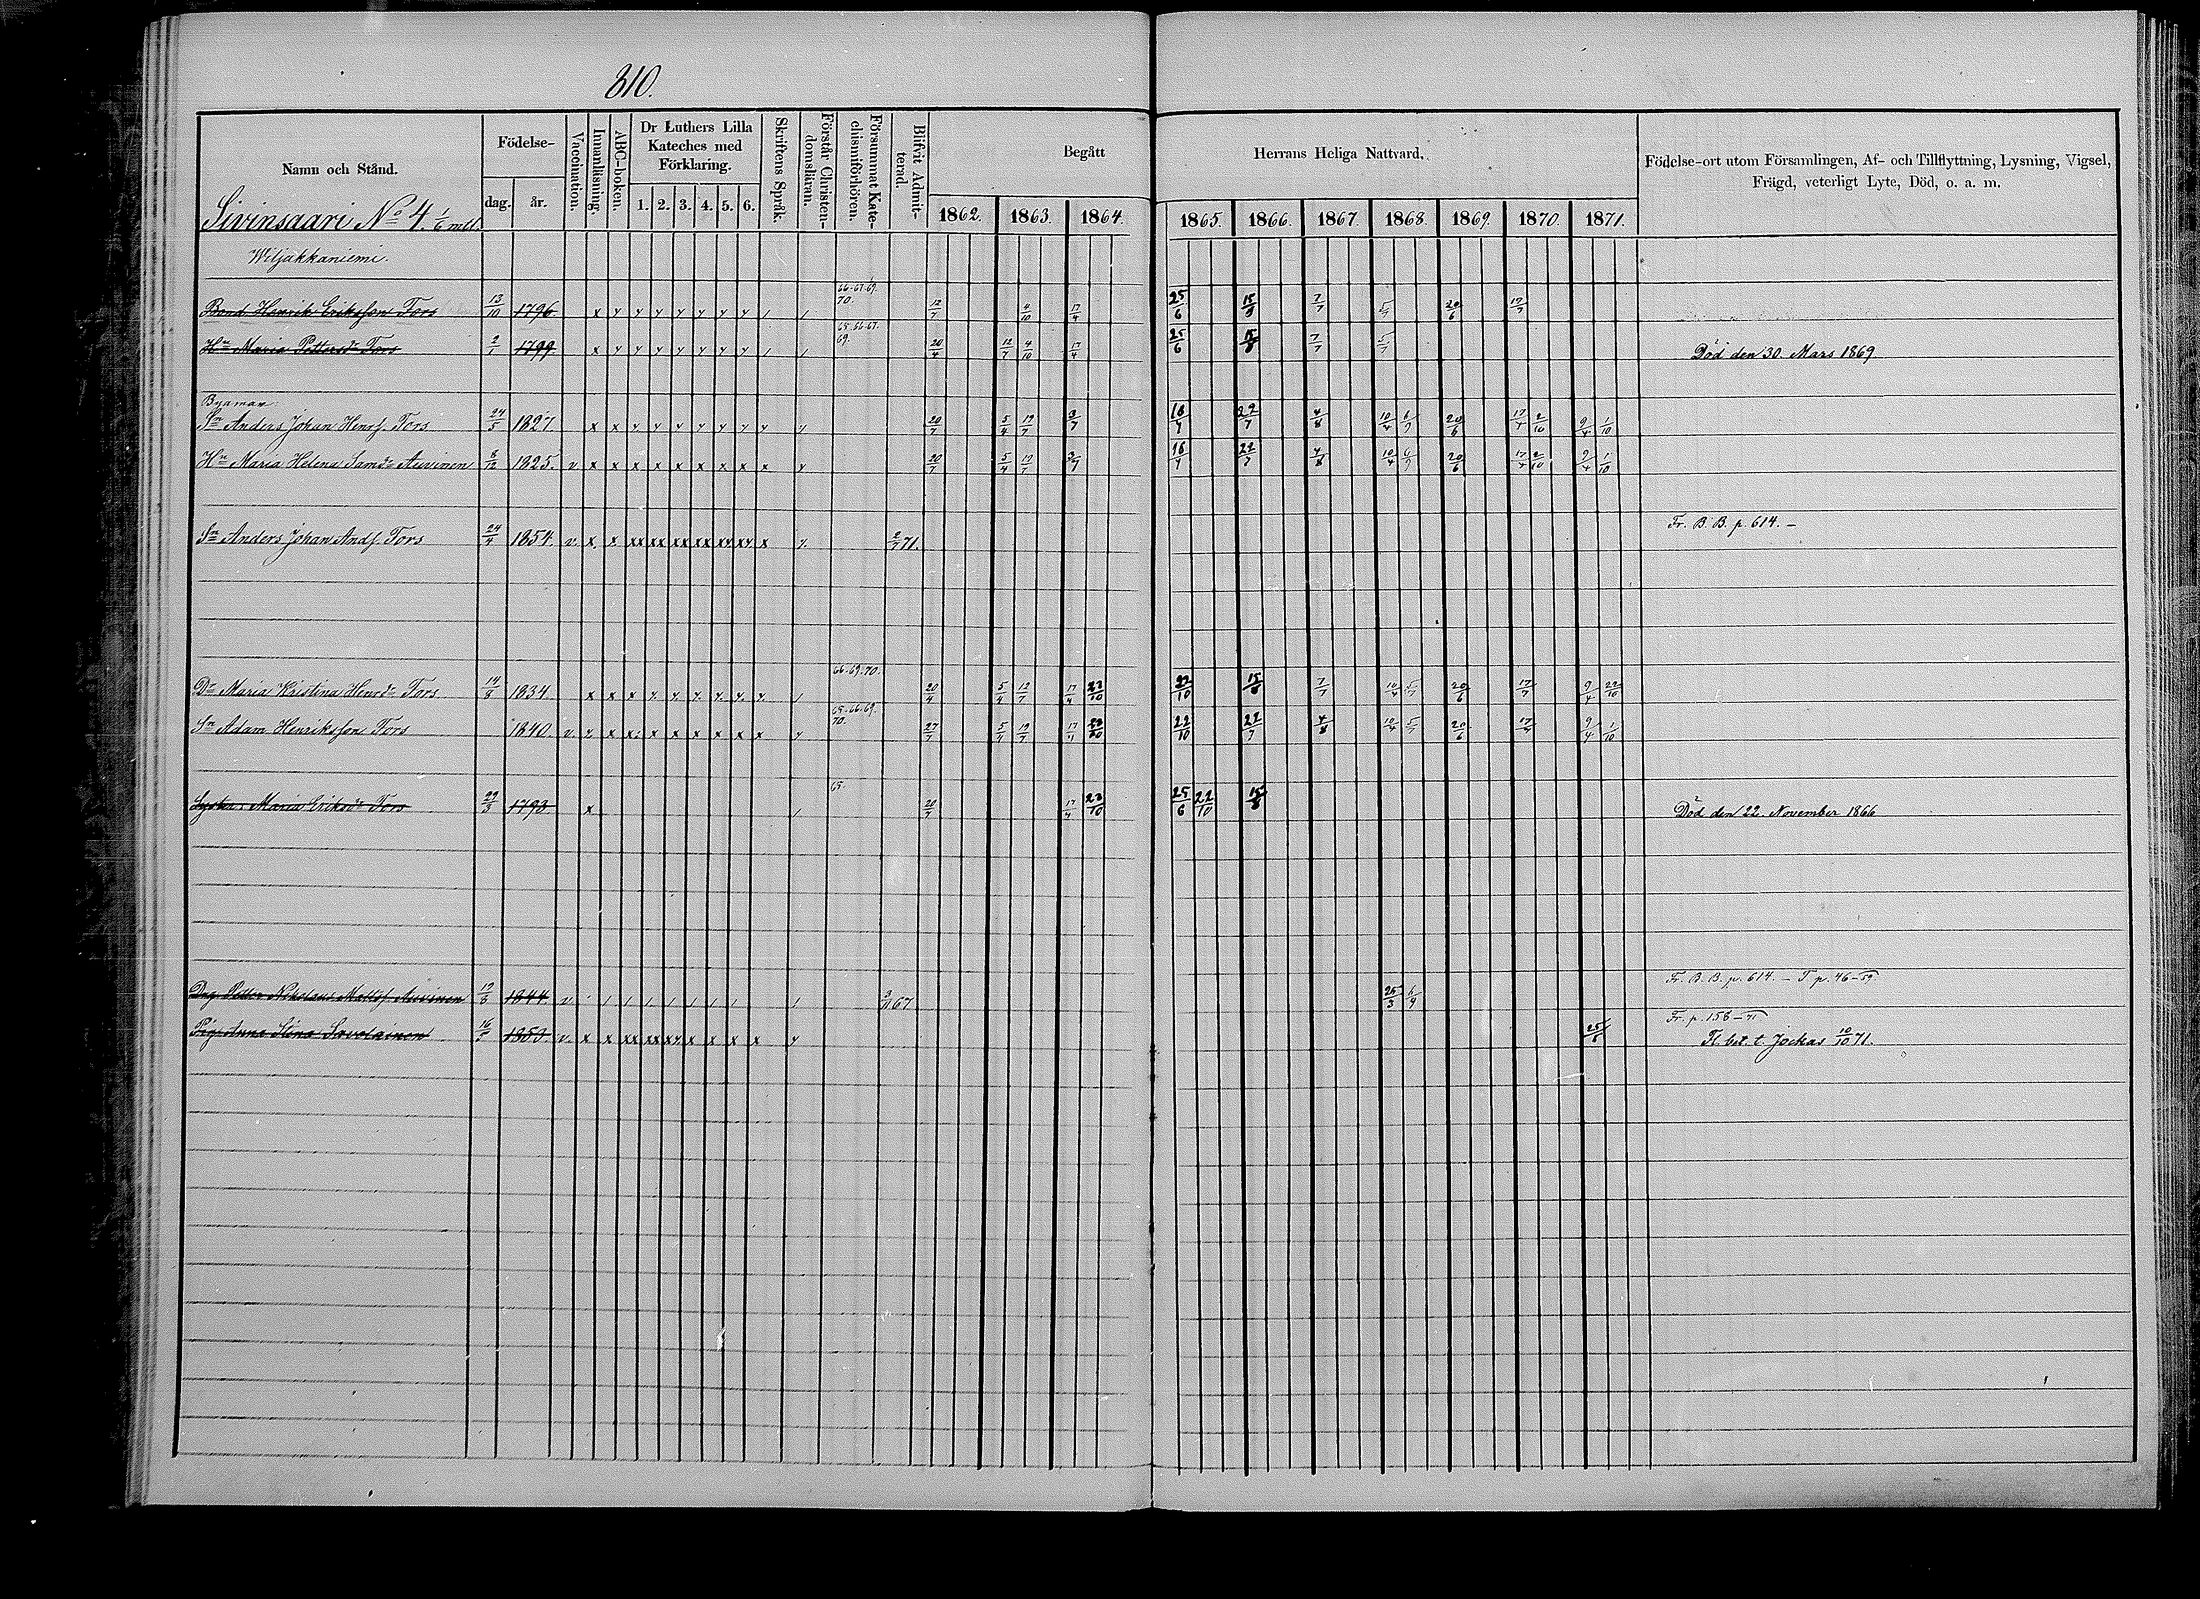 810.
Namn och Stånd.
Födelse-
dag. år.
Vaccination.
Innanläsning.
ABC-boken.
Dr Luthers Lilla
Kateches med
Förklaring.
1. 2. 3. 4. 5. 6.
Skriftens Språk.
Förstår Christen-
domsläran.
Försummat Kate-
chismiförhören.
Blifvit Admit-
terad.
Begått Herrans Heliga Nattvard.
1862. 1863. 1864. 1865. 1866. 1867. 1868. 1869. 1870. 1871.
Födelse-ort utom Församlingen, Af- och Tillflyttning, Lysning, Vigsel,
Frägd, veterligt Lyte, Död, o. a. m.
Sivinsaari No 4. 1/6 mtl.
Wiljakkaniemi.
66-67-69.
70.
Bond. Henrik Eriksson Fors 13/10 1796 x y y y y y y y / / 12/7 4/10 17/4 25/6 15/8 7/7 5/7 20/6 17/7
65-66-67.
69.
Hu Maria Pettersdr Fors 2/1 1799. x y y y y y y y / / 20/4 12/7 4/10 17/4 25/6 15/8 7/7 5/7 Död den 30. Mars 1869
Byaman
Sn Anders Johan Henrs. Fors 24/5 1827. x x y y y y y y y y 20/7 5/4 19/7 3/7 16/7 22/7 4/8 10/4 6/7 20/6 17/4 2/10 9/4 1/10
Hu Maria Helena Samdr Auvinen 8/12 1825. v x x x x x x x x x y 20/7 5/4 19/7 3/7 16/7 22/7 4/8 10/4 6/7 20/6 17/4 2/10 9/4 1/10
Fr. B. B. p. 614. —
Sn Anders Johan Ands. Fors 24/4 1854. v. x. x. xx xx xx xx xy xy x y. 2/7 71.
66-69-70.
Dr Maria Kristina Henrdr Fors 14/8 1834. x x x y. y. y. y. y. y. / 20/4 5/4 12/7 17/4 23/10 22/10 15/8 7/7 10/4 5/7 20/6 17/7 9/4 22/10
65-66-69.
70.
Sn Adam Henriksson Fors 1840. v. y. x x: x x x x x x y 27/7 5/4 19/7 17/4 22/10 22/7 4/8 10/4 5/7 20/6 17/7 9/4 1/10
65.
Syster: Maria Eriksdr Fors 29/3 1793. x / 20/7 17/4 23/10 25/6 22/10 15/8 Död den 22. November 1866
Fr. B. B. p. 614. — T. p. 46-59.
Drg. Petter Nikolaus Matts. Auvinen 19/8 1844. v. / / / / / / / / / 67 25/3 6/9
Fr. p. 158 — 71
Pig. Anna Stina Savolainen 16/5 1850. v. x x xx xx xy x x x x y 25/6 Fl. bet. t. Jockas 10/10 71.